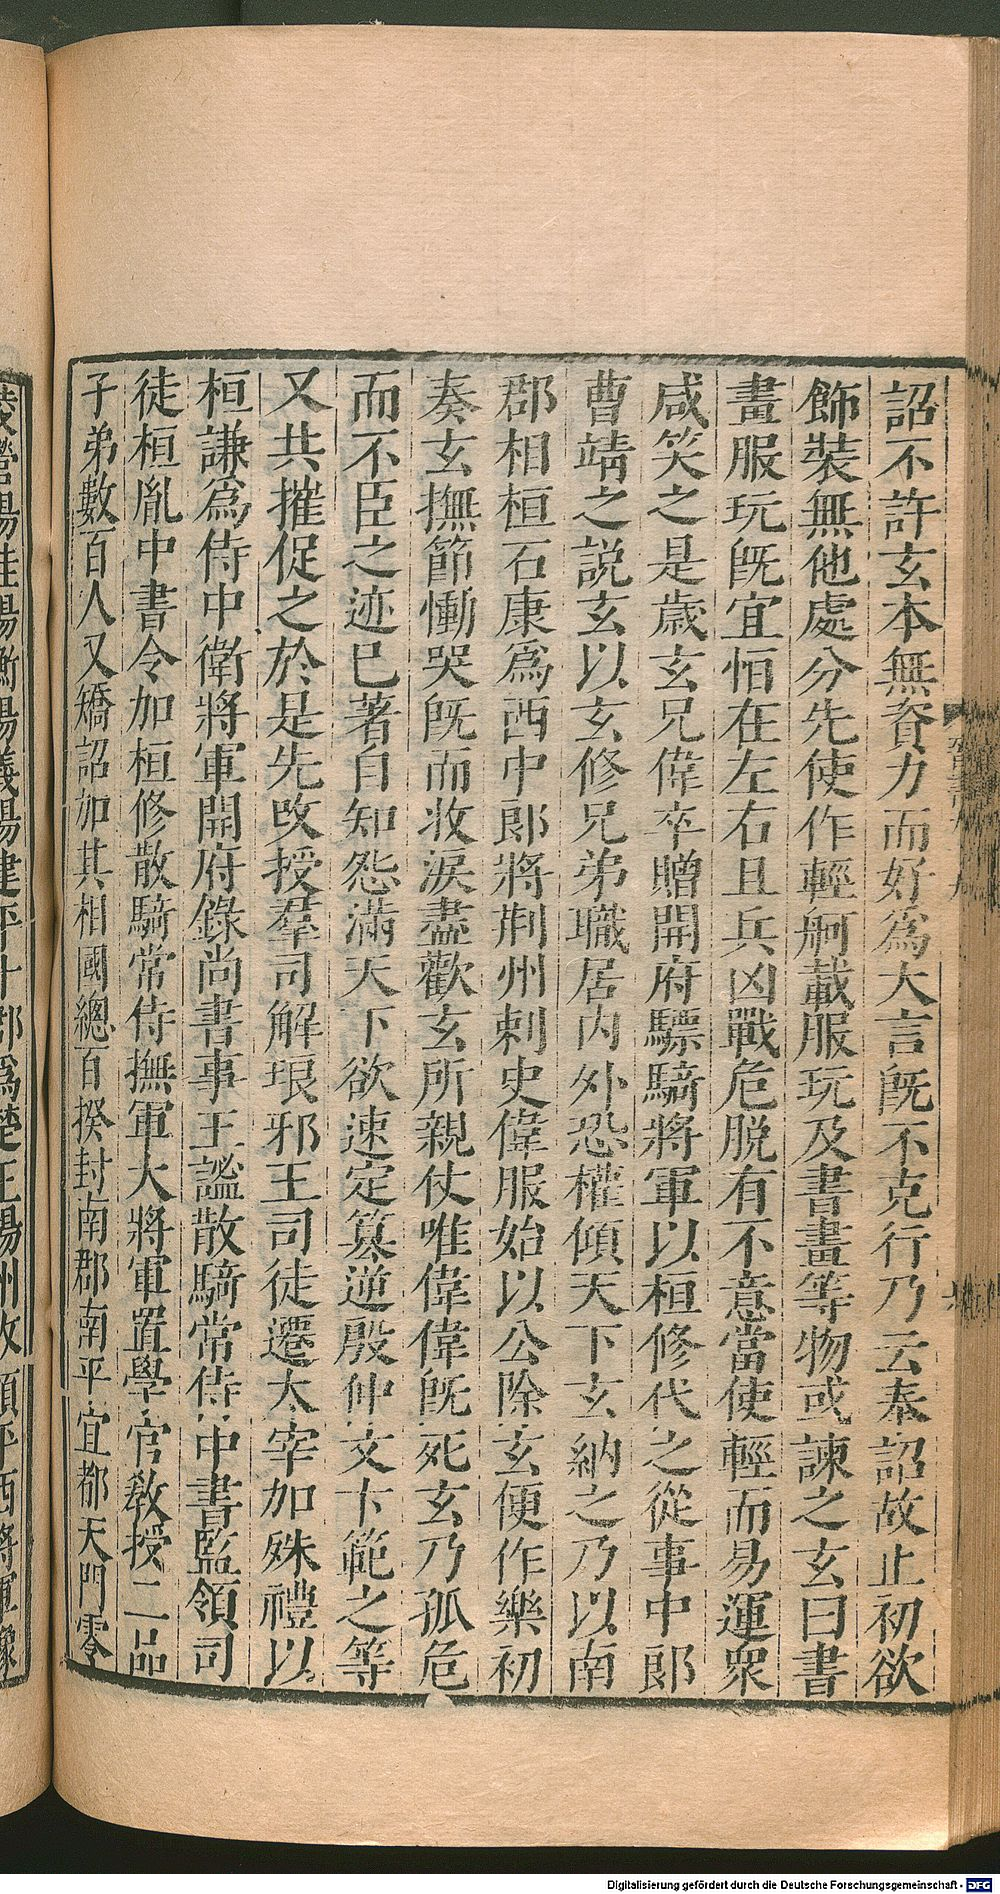 詔不許玄本無資力而好爲大言旣不克行乃云奉詔故止初欲
飾裝無他處分先使作輕舸載服玩及書畫等物或諫之玄曰書
畫服玩旣宜恒在左右且兵凶戰危脫有不意當使輕而易運衆
咸笑之是歲玄兄偉卒贈開府驃騎將軍以桓修代之從事中郎
曹靖之説玄以玄修兄弟職居内外恐權傾天下玄納之乃以南
郡相桓石康爲西中郎將荆州刺史偉服始以公除玄便作樂初
奏玄撫節慟哭旣而收淚盡歡玄所親仗唯偉偉旣死玄乃孤危
而不臣之迹已著自知怨滿天下欲速定篡逆殷仲文卞範之等
又共摧促之於是先改授羣司解琅邪王司徒遷太宰加殊禮以
桓謙爲侍中衛將軍開府錄尚書事王謐散騎常侍中書監領司
徒桓胤中書令加桓修散騎常侍撫軍大將軍置學官敎授二品
子弟數百人又矯詔加其相國總百揆封南郡南平宜都天門零
陽營陽桂陽衡陽義陽建平十郡爲楚王揚州牧領平西將軍豫
Digitalisierung gefördert durch die Deutsche Forschungsgemeinschaft - DFG